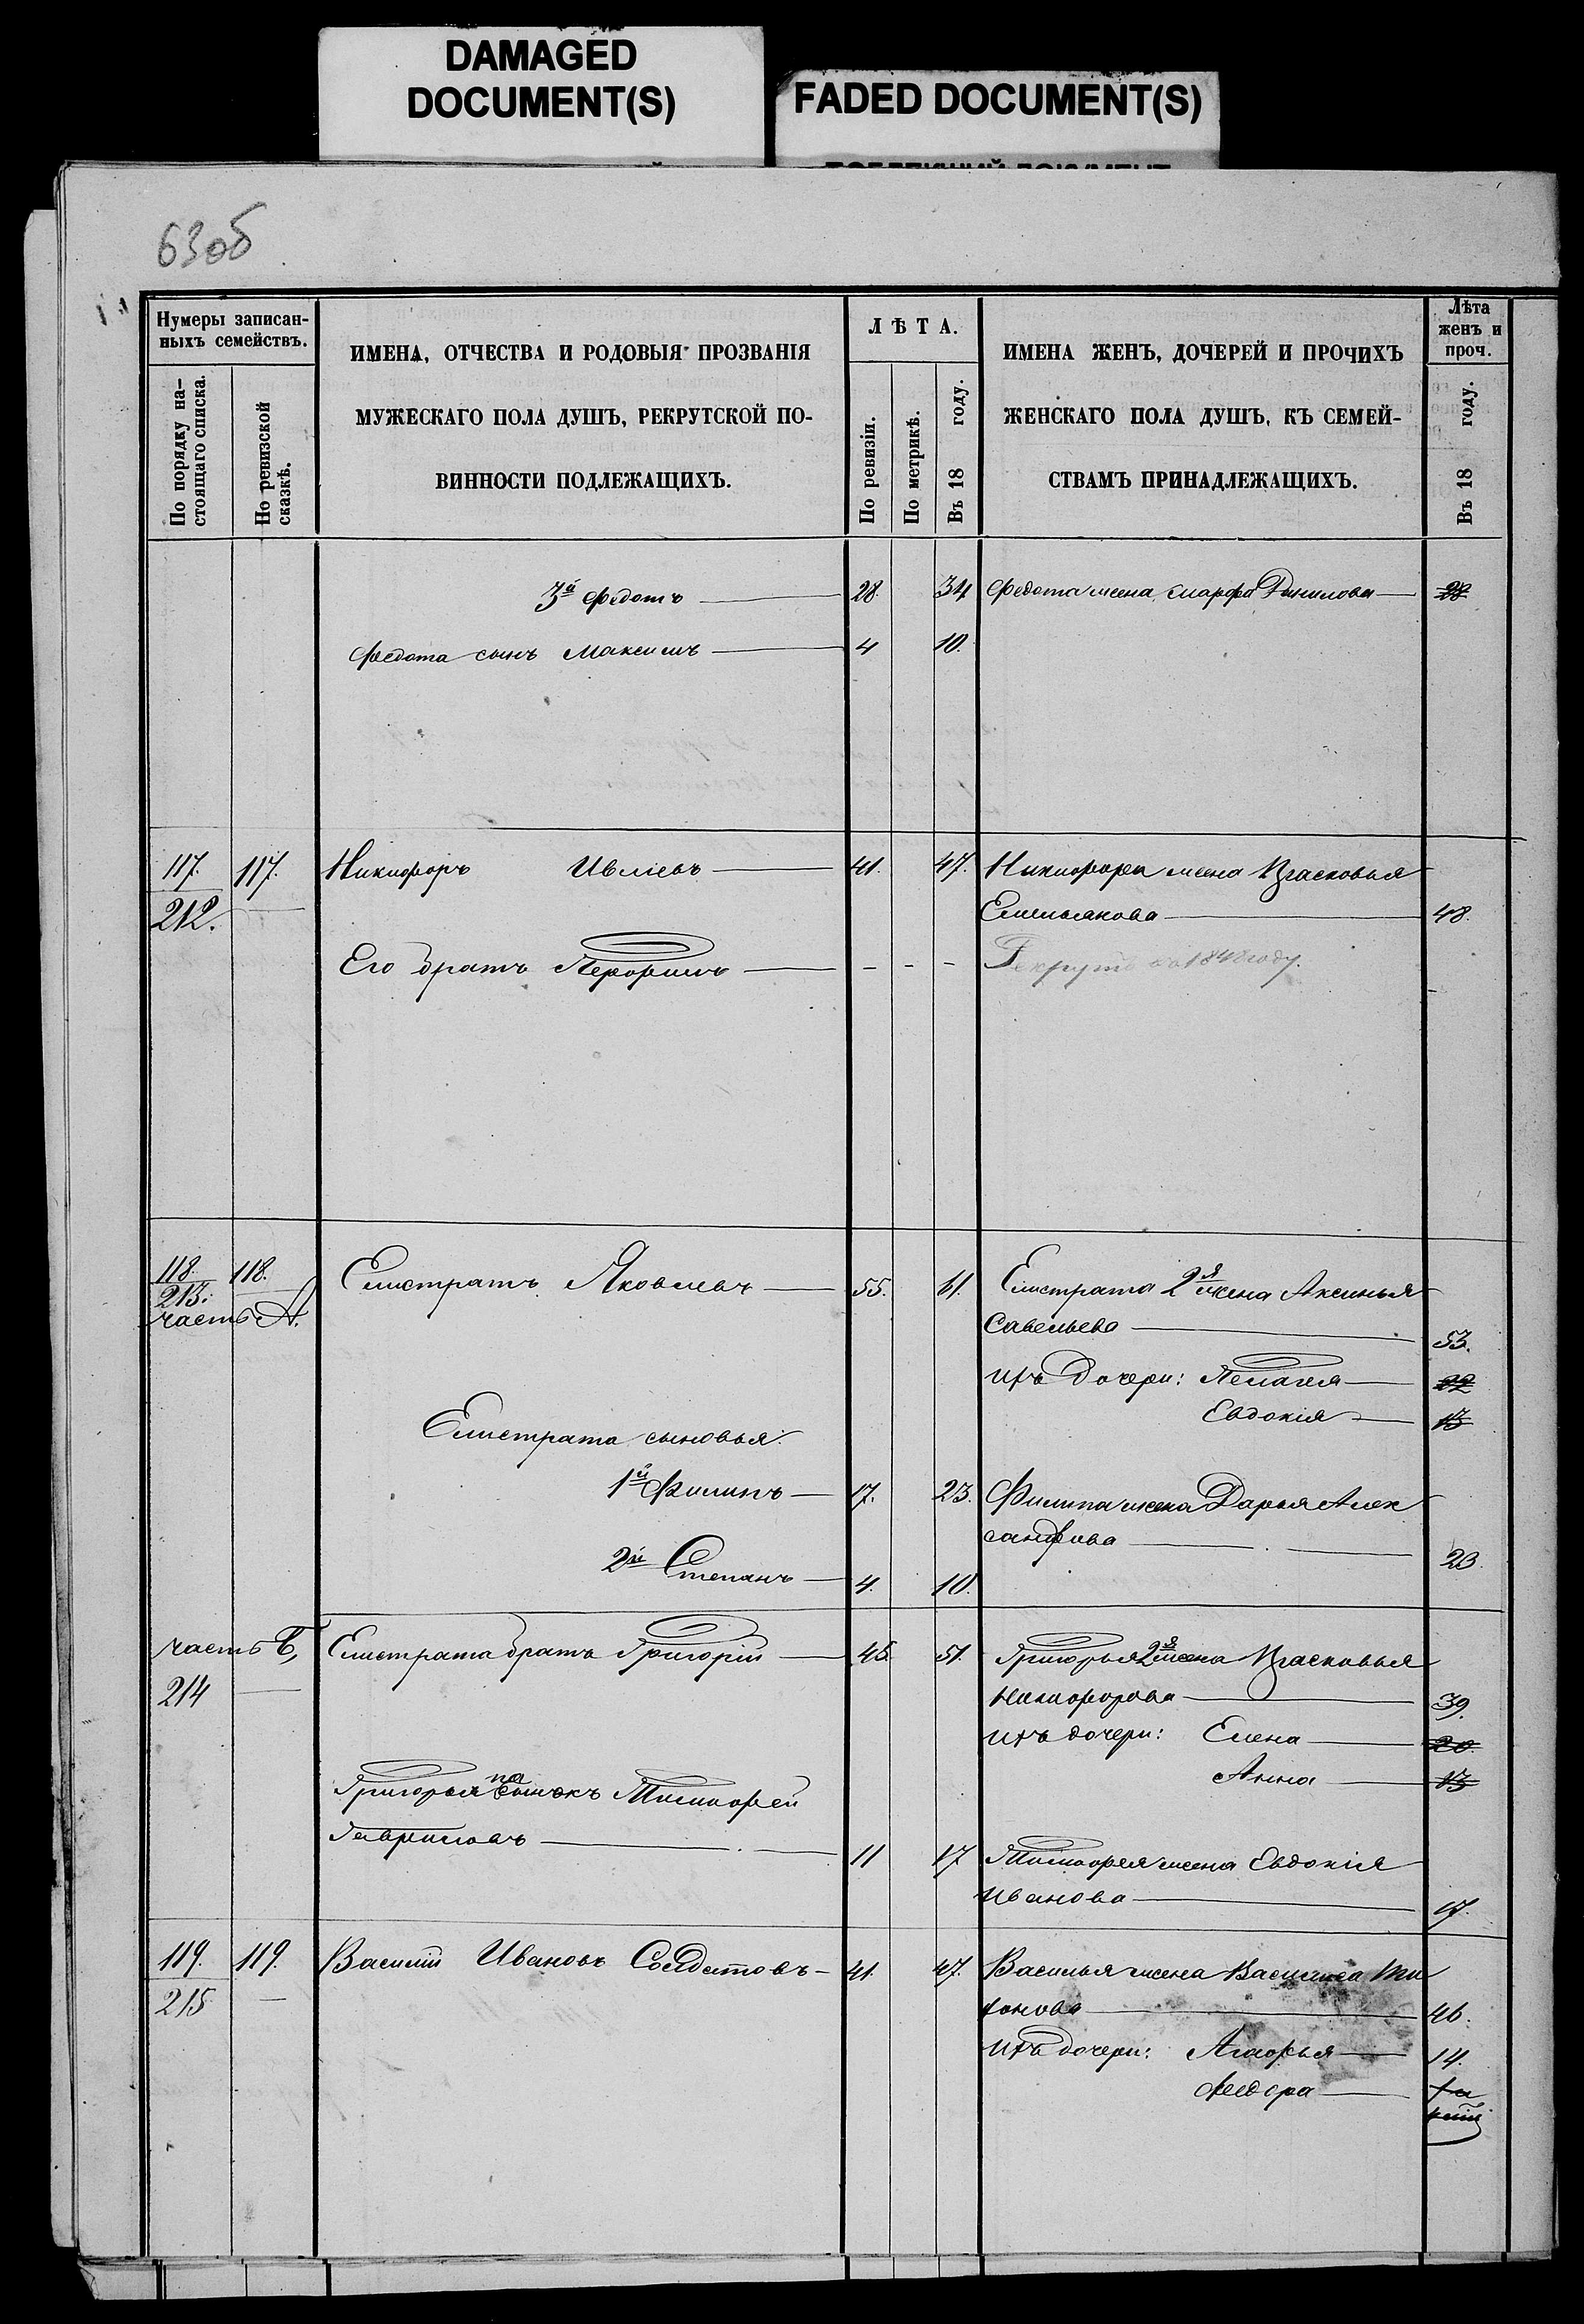 DAMAGED
DOCUMENT(S)
FADED DOCUMENT(S)
63об
Нумеры записан-
ныхъ семействъ.
По порядку на-
стоящаго списка.
По ревизской
сказкѣ.
ИМЕНА, ОТЧЕСТВА И РОДОВЫЯ ПРОЗВАНІЯ
МУЖЕСКАГО ПОЛА ДУШЪ, РЕКРУТСКОЙ ПО-
ВИННОСТИ ПОДЛЕЖАЩИХЪ.
ЛѢТА.
По ревизіи.
По метрикѣ.
Въ 18 году.
ИМЕНА ЖЕНЪ, ДОЧЕРЕЙ И ПРОЧИХЪ
ЖЕНСКАГО ПОЛА ДУШЪ, КЪ СЕМЕЙ-
СТВАМЪ ПРИНАДЛЕЖАЩИХЪ.
Лѣта
женъ и
проч.
Въ 18 году.
3й Федотъ 28. 34 Федота жена Марфа Данилова 28
Федота сынъ Максимъ 4 10.
117. 117. Никифоръ Ивліевъ 41. 47. Никифора жена Прасковья
212. Емельянова 48.
Его братъ Перфилъ - - - Рекрутъ 1848 году.
118. 118. Елистратъ Яковлевъ 55. 61. Елистрата 2я жена Аксинья
213. Савельева 53.
часть А.
ихъ дочери: Пелагея 22
Евдокія 13
Елистрата сыновья:
1й Филипъ 17. 23. Филипа жена Дарья Алек
сандрова 23.
2й Степанъ 4. 10.
часть Б, Елистрата братъ Григорій 45. 51. Григорья 2я жена Прасковья
214 Никифорова 39.
ихъ дочери: Елена 20.
Анна 13
Григорья пасынокъ Тимофей
Гавриловъ 11 17 Тимофея жена Евдокія
Иванова 17.
119. 119. Василій Ивановъ Солдатовъ 41. 47. Василья жена Василиса Ти
215 хонова 46.
ихъ дочери: Агафья 14.
Федора